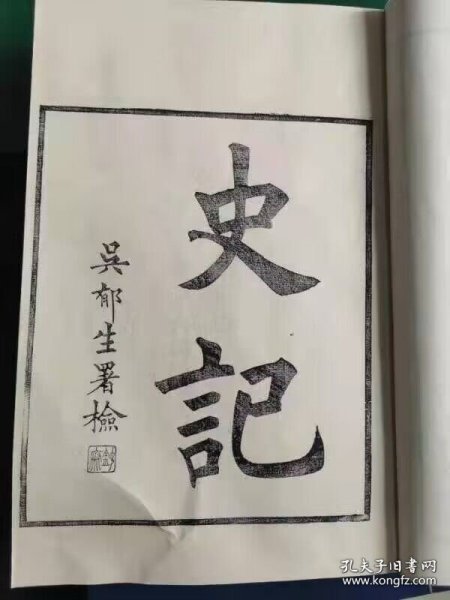 史記
吳郁生署檢
孔夫子旧书网
www.kongfz.com